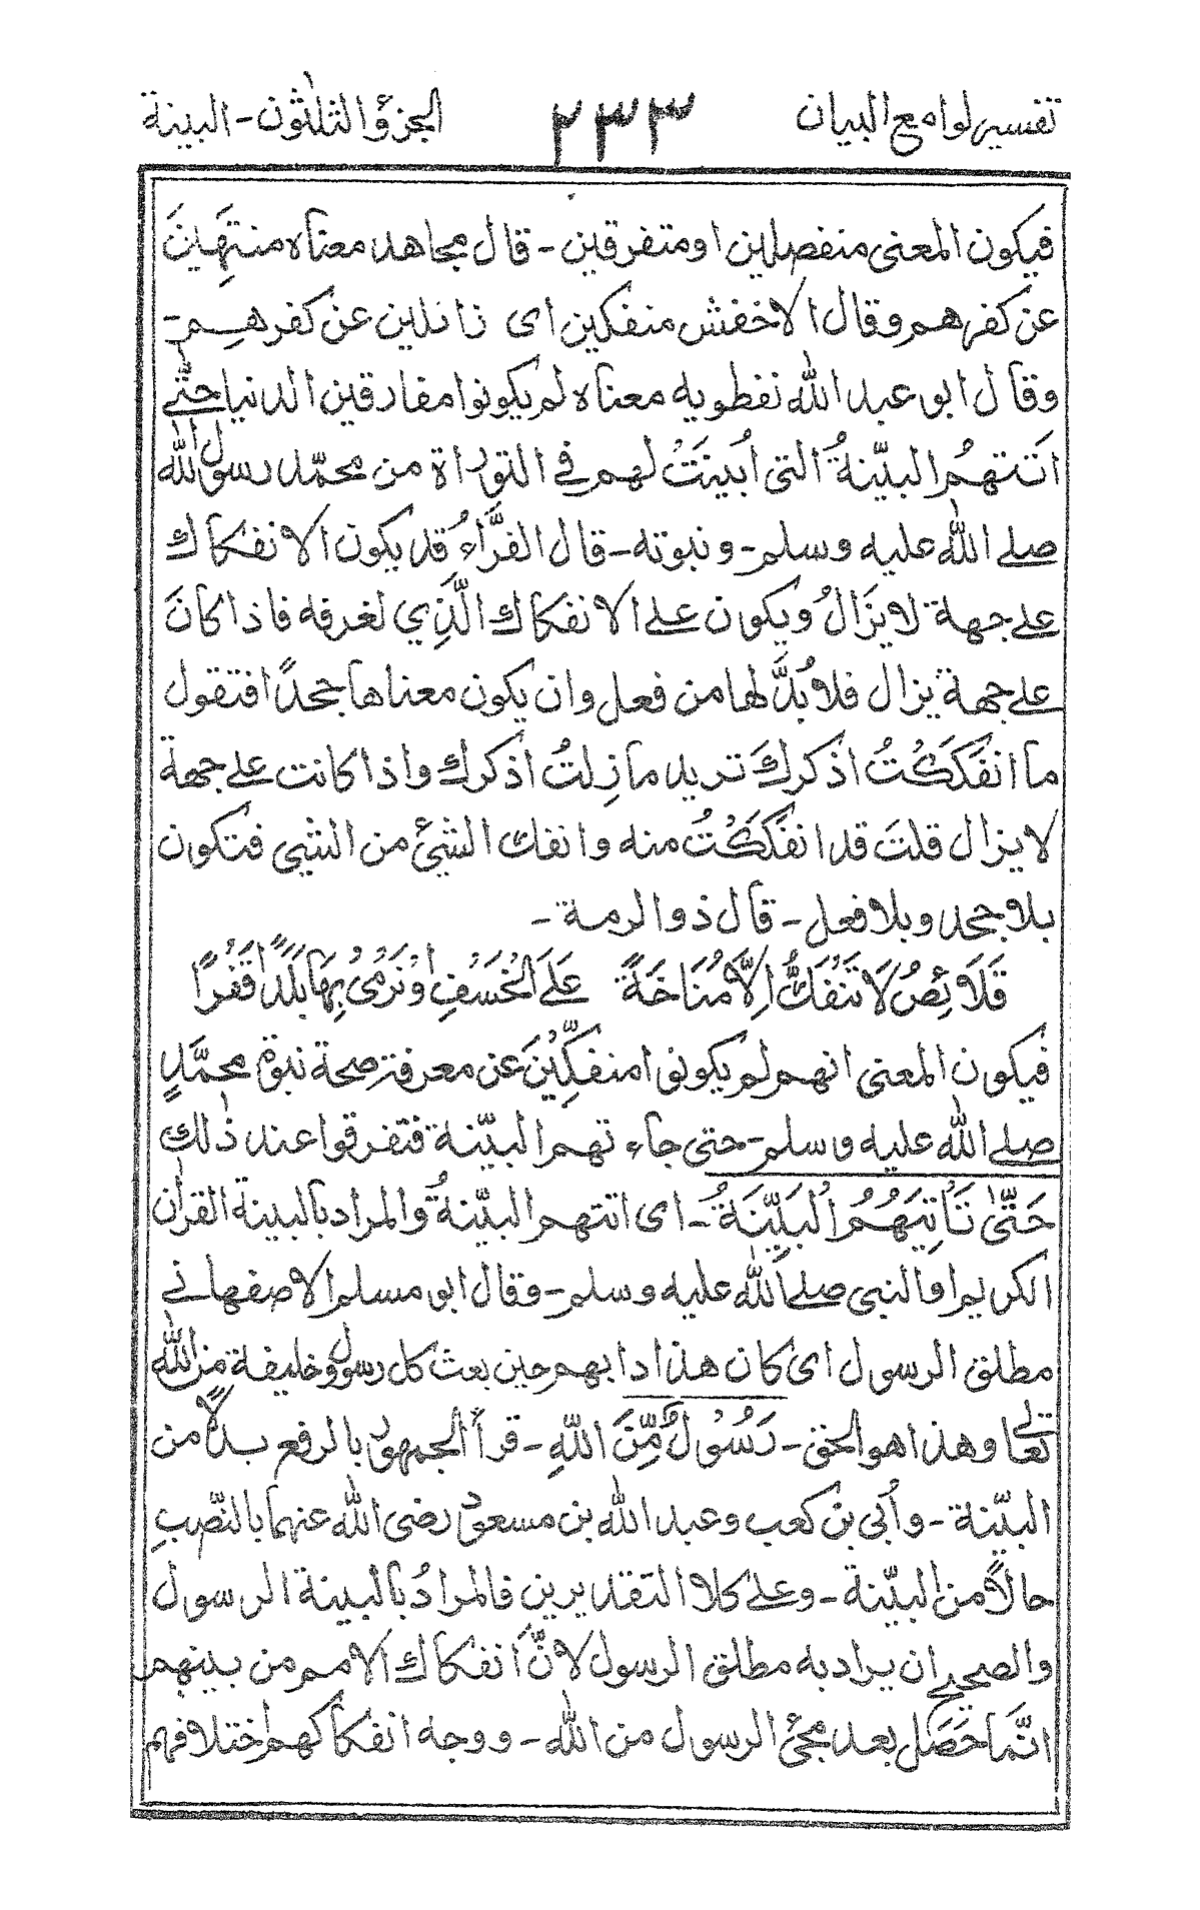 تفسير لوامع البيان ٢٣٣ الجزؤ الثلٰثون - البينة
فيكون المعنى منفصلين او متفرقين - قال مجاهد معناه منتهِينَ
عن كفرهم وقال الاخفش منفكين اى زائلين عن كفرهم -
وقال ابو عبد الله نفطويه معناه لم يكونوا مفارقين الدنيا حتّٰى
اتتهمُ البيّنةُ التى اُبينَتْ لهم فى التوراة من محمّد رسول الله
صلى الله عليه وسلم - ونبوته - قال الفرَّاءُ قد يكون الانفكاك
على جهة لا يزَالُ ويكون على الانفكاك الَّذِي لغرفه فاذا كانَ
على جهة يزال فلا بُدَّ لها من فعل وان يكون معناها جحدًا فتقول
ما انفَكَكْتُ اذكركَ تريد ما زِلتُ اذكرك واذا كانت على جهة
لا يزال قلتَ قد انفَكَكْتُ منه وانفك الشئ من الشيى فتكون
بلا جحد وبلا فعل - قال ذو الرمة -
قَلَائِصُ لَا تَنْفَكُّ اِلَّا مُنَاخَةً عَلَى الْخَسَفِ اَوْ نَرْمِىْ بِهَا بَلَدًا قَفْرًا
فيكون المعنى انهم لم يكونوا منفكِّيْنَ عن معرفة صحة نبوة محمَّدٍ
صلى الله عليه وسلم - حتى جاءتهم البيّنة فتفرقوا عند ذٰلك
حَتّٰى تَأتِيَهُمُ الْبَيِّنَةُ - اى اتتهم البيّنةُ والمراد بالبينة القرآن
الكريم او النبى صلى الله عليه وسلم - وقال ابو مسلم الاصفهانى
مطلق الرسول اى كان هذا دابهم حين بعث كل رسول وخليفة من الله
تعالى وهذا هو الحق - رَسُوْلٌ مِّنَ اللّٰهِ - قرأ الجمهور بالرفع بدلًا من
البيّنة - واُبى بن كعب وعبد الله بن مسعود رضى الله عنهما بالنّصبِ
حالًا من البيّنة - وعلى كلا التقديرين فالمرادُ بالبينة الرسول
والصحيح ان يراد به مطلق الرسول لانَّ انفكاك الامم من بينهم
انَّما حَصَل بعد مجئ الرسول من الله - ووجه انفكاكهم اختلافهم